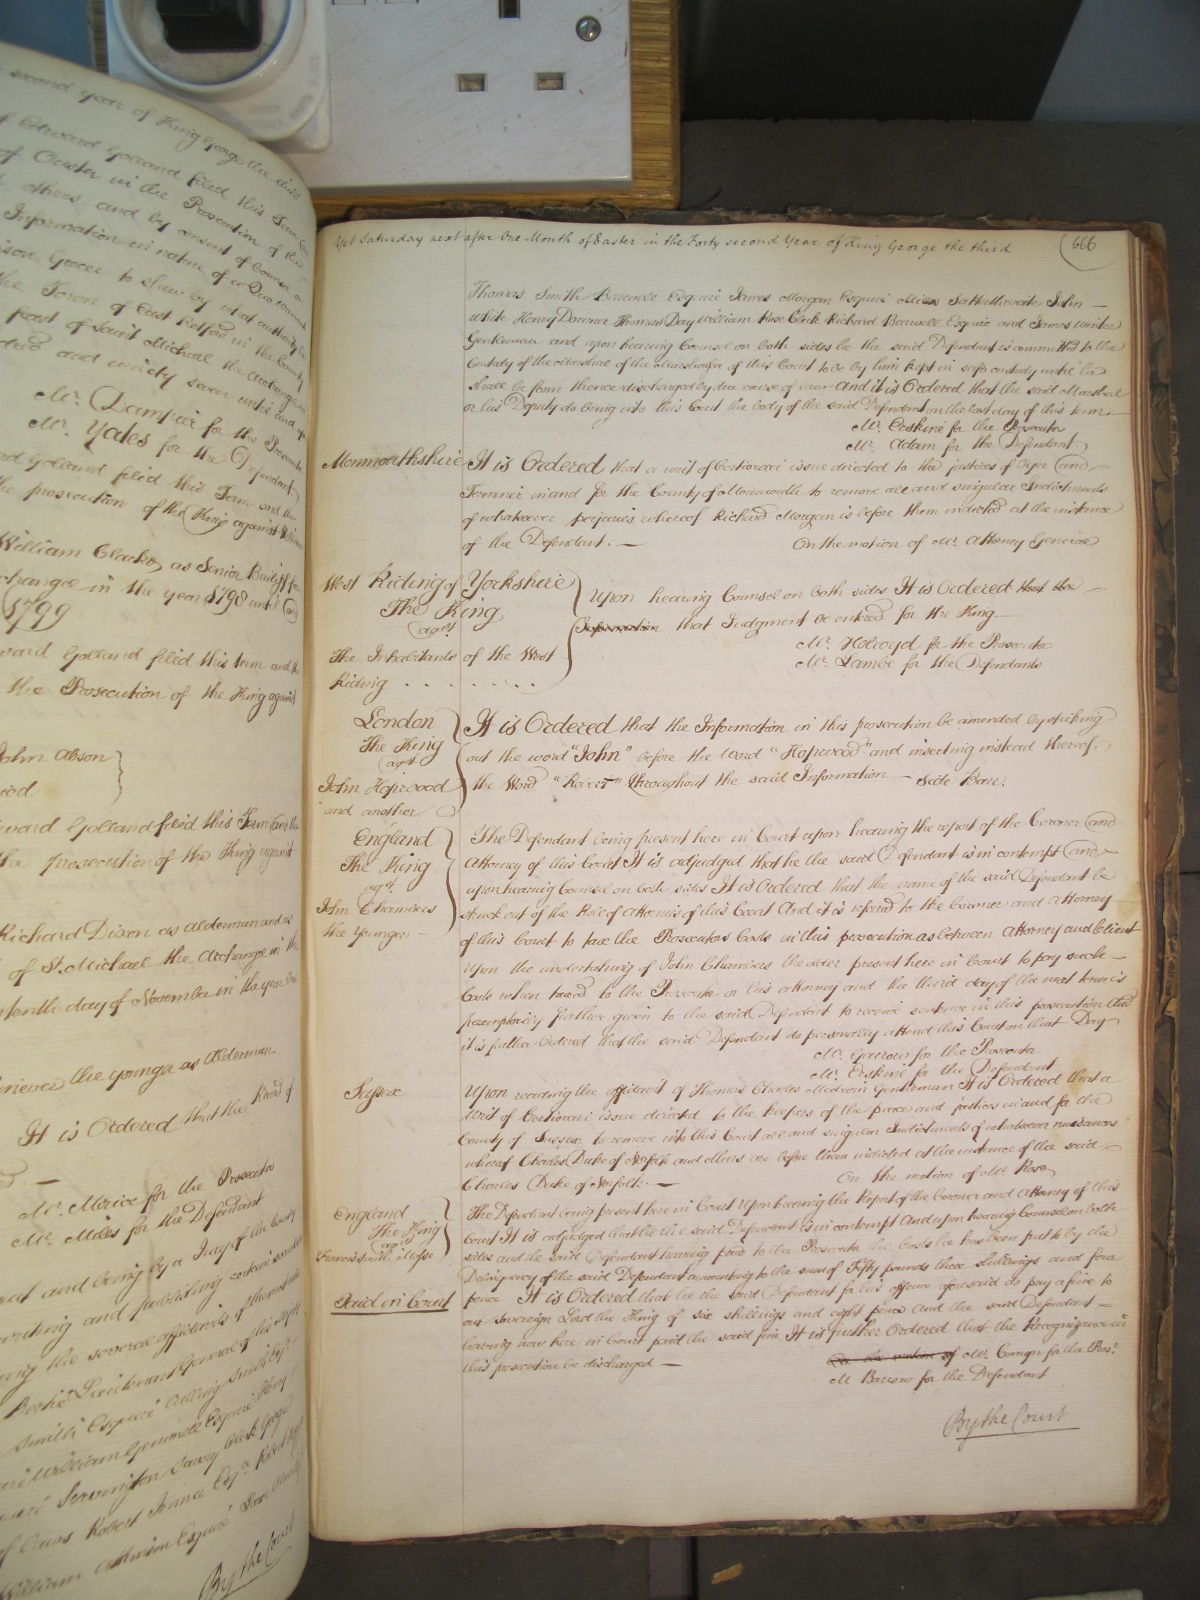 second year of King George the third
of Edward Golland filed this Term
of Easter in the Prosecution of the
others and by consent of Counsel
Information in nature of a Quo warranto
Grocer to shew by what authority he
the Town of East Retford in the County
feast of Saint Michael the Archangel in
and ninety seven until
Mr. Dampier for the Prosecutor
Mr. Yates for the Defendant
Golland filed this Term and the
the prosecution of the King against
William Clarke as Senior Bailiff for
change in the year 1798 until and
1799
ward Golland filed this term and the
the Prosecution of the King against
John Abson
ward Golland filed this Term and the
the prosecution of the King against
Richard Dixon as Alderman and as
of St. Michael the Archangel in the
tenth day of November in the year
the younger as Alderman.
It is Ordered that the Rule of
Mr. Morice for the Prosecutor
Mr. Miles for the Defendant
and being by a Jury of the County
printing and publishing certain scandalous
the several affidavits of Thomas
Bertie Lieutenant General of his
Smith Esquire Culling Smith Esqr.
William Esquire Henry
Savery Clerk George
Robert Esqr. Robert
William Esquire
By the Court
Yet Saturday next after One Month of Easter in the Forty second Year of King George the third
666
Thomas Smith Barwell Esquire James Morgan Esquire Miles Satterthwaite John
White Henry Downer Thomas Day William Rose Clerk Richard Barwell Esquire and James Winter
Gentleman and upon hearing Counsel on both sides he the said Defendant is committed to the
Custody of the Marshal of the Marshalsea of this Court to be by him kept in safe custody until he
shall be from thence discharged by due course of Law And it is Ordered that the said Marshal
or his Deputy do bring into this Court the body of the said Defendant on the last day of this term.
Mr. Erskine for the Prosecutor
Mr. Adam for the Defendant
Monmouthshire It is Ordered that a writ of Certiorari issue directed to the justices of Oyer and
Terminer in and for the County of Monmouth to remove all and singular Indictments
of whatsoever perjuries whereof Richard Morgan is before them indicted at the instance
of the Defendant. On the motion of Mr. Attorney General
West Riding of Yorkshire
The King
agst.
The Inhabitants of the West
Riding
Upon hearing Counsel on both sides It is Ordered that the
Information that Judgment be entered for the King
Mr. Holroyd for the Prosecutor
Mr. Lambe for the Defendants
London
The King
agst.
John Hopwood
and another
It is Ordered that the Information in this prosecution be amended by striking
out the word "John" before the Word "Hopwood" and inserting instead thereof
the Word "Robert" throughout the said Information – Side Bar.
England
The King
agst.
John Chambers
the Younger
The Defendant being present here in Court upon hearing the report of the Coroner and
Attorney of this Court It is adjudged that he the said Defendant is in contempt and
upon hearing Counsel on both sides It is Ordered that the name of the said Defendant be
struck out of the Roll of Attornies of this Court And it is referred to the Coroner and Attorney
of this Court to tax the Prosecutors Costs in this prosecution as between Attorney and Client
Upon the undertaking of John Chambers the elder present here in Court to pay such
Costs when taxed to the Prosecutor or his Attorney and the third day of the next term is
peremptorily further given to the said Defendant to receive sentence in this prosecution And
it is further Ordered that the said Defendant do personally attend this Court on that Day
Mr. Garrow for the Prosecutor
Mr. Erskine for the Defendant
Sussex
Upon reading the affidavit of Thomas Charles Medwin Gentleman It is Ordered that a
Writ of Certiorari issue directed to the keepers of the peace and justices in and for the
County of Sussex to remove into this Court all and singular Indictments of whatsoever nuisances
whereof Charles Duke of Norfolk and others are before them indicted at the instance of the said
Charles Duke of Norfolk. On the motion of Mr. Rose
England
The King
agst.
Francis Smith
Paid in Court
The Defendant being present here in Court Upon hearing the Report of the Coroner and Attorney of this
Court It is adjudged that he the said Defendant is in contempt And upon hearing Counsel on both
sides and the said Defendant having paid to the Prosecutor the Costs he has been put to by the
Delinquency of the said Defendant amounting to the sum of Fifty pounds three shillings and four
pence It is Ordered that he the said Defendant for his offence aforesaid do pay a fine to
our Sovereign Lord the King of six shillings and eight pence And the said Defendant
having now here in Court paid the said fine It is further Ordered that the Recognizance in
this prosecution be discharged
On the motion of Mr. for the Prosr.
M Barrow for the Defendant
By the Court